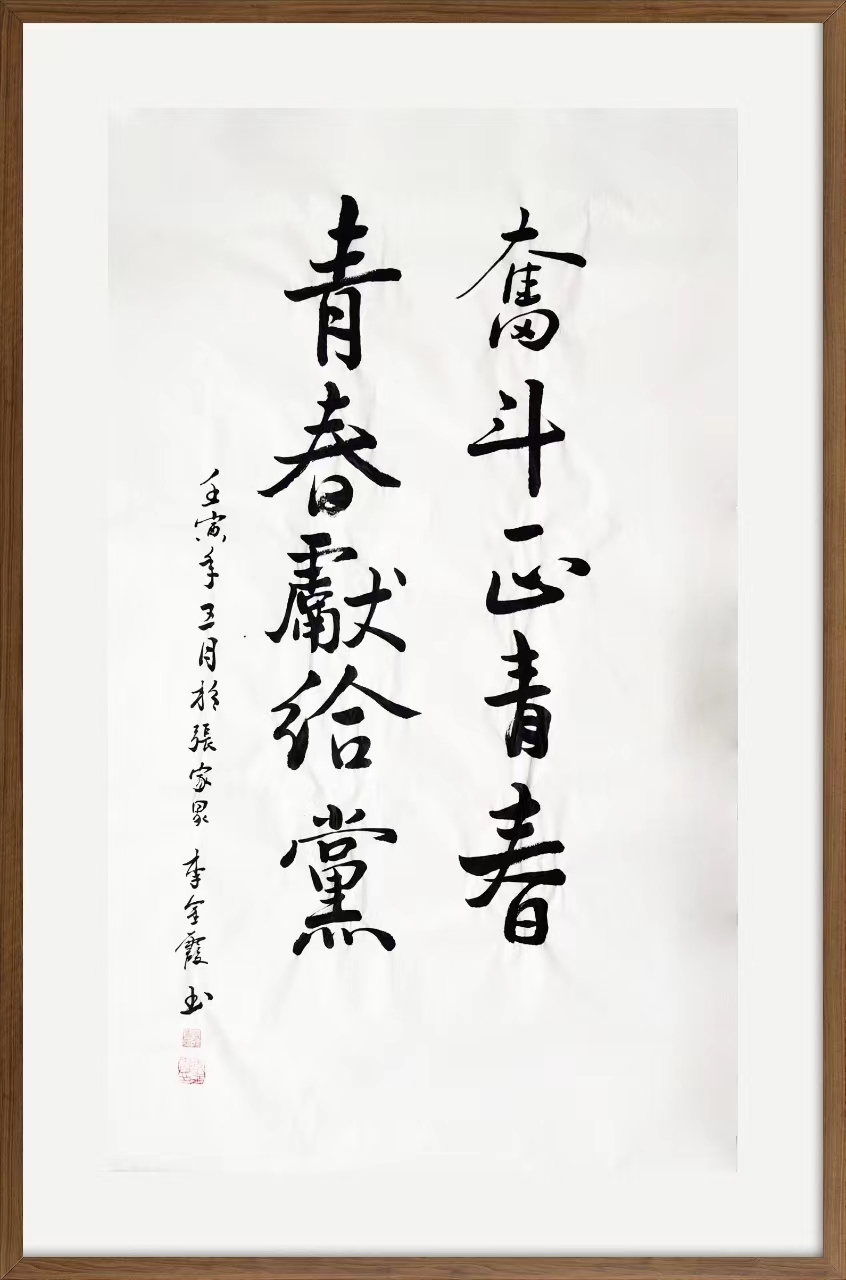 奮斗正青春
青春獻給黨
壬寅年五月於張家界 李金霞书